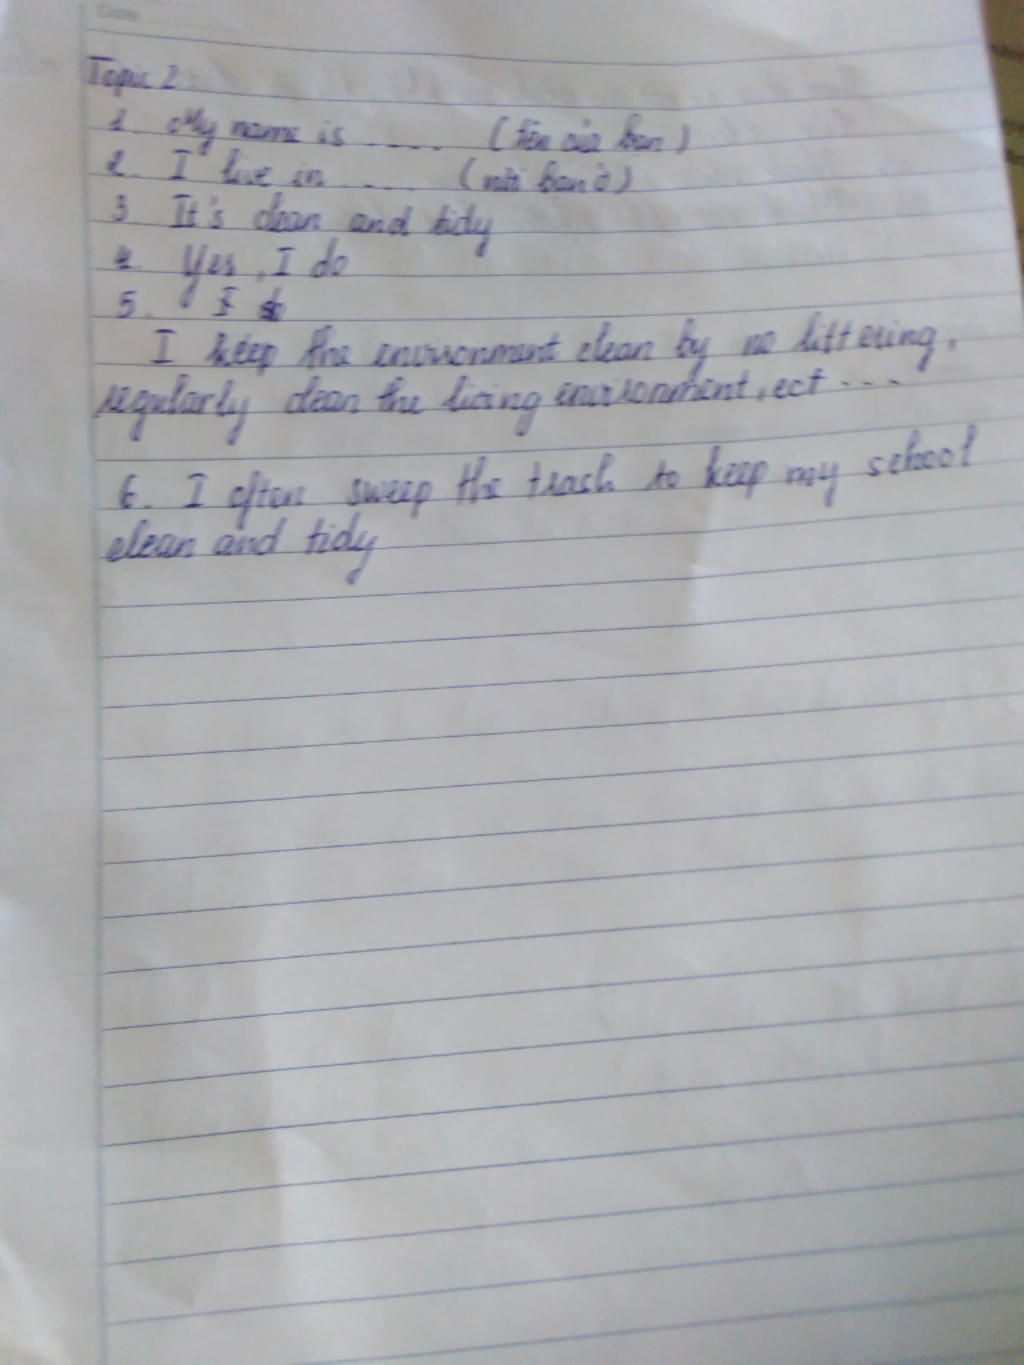 Date
Topic 2
1. My name is ..... (tên của bạn)
2. I live in .... (nơi bạn ở)
3 It's clean and tidy
4. Yes, I do
5. I
I keep the environment clean by no littering,
regularly clean the living environment, ect ....
6. I often sweep the trash to keep my school
clean and tidy